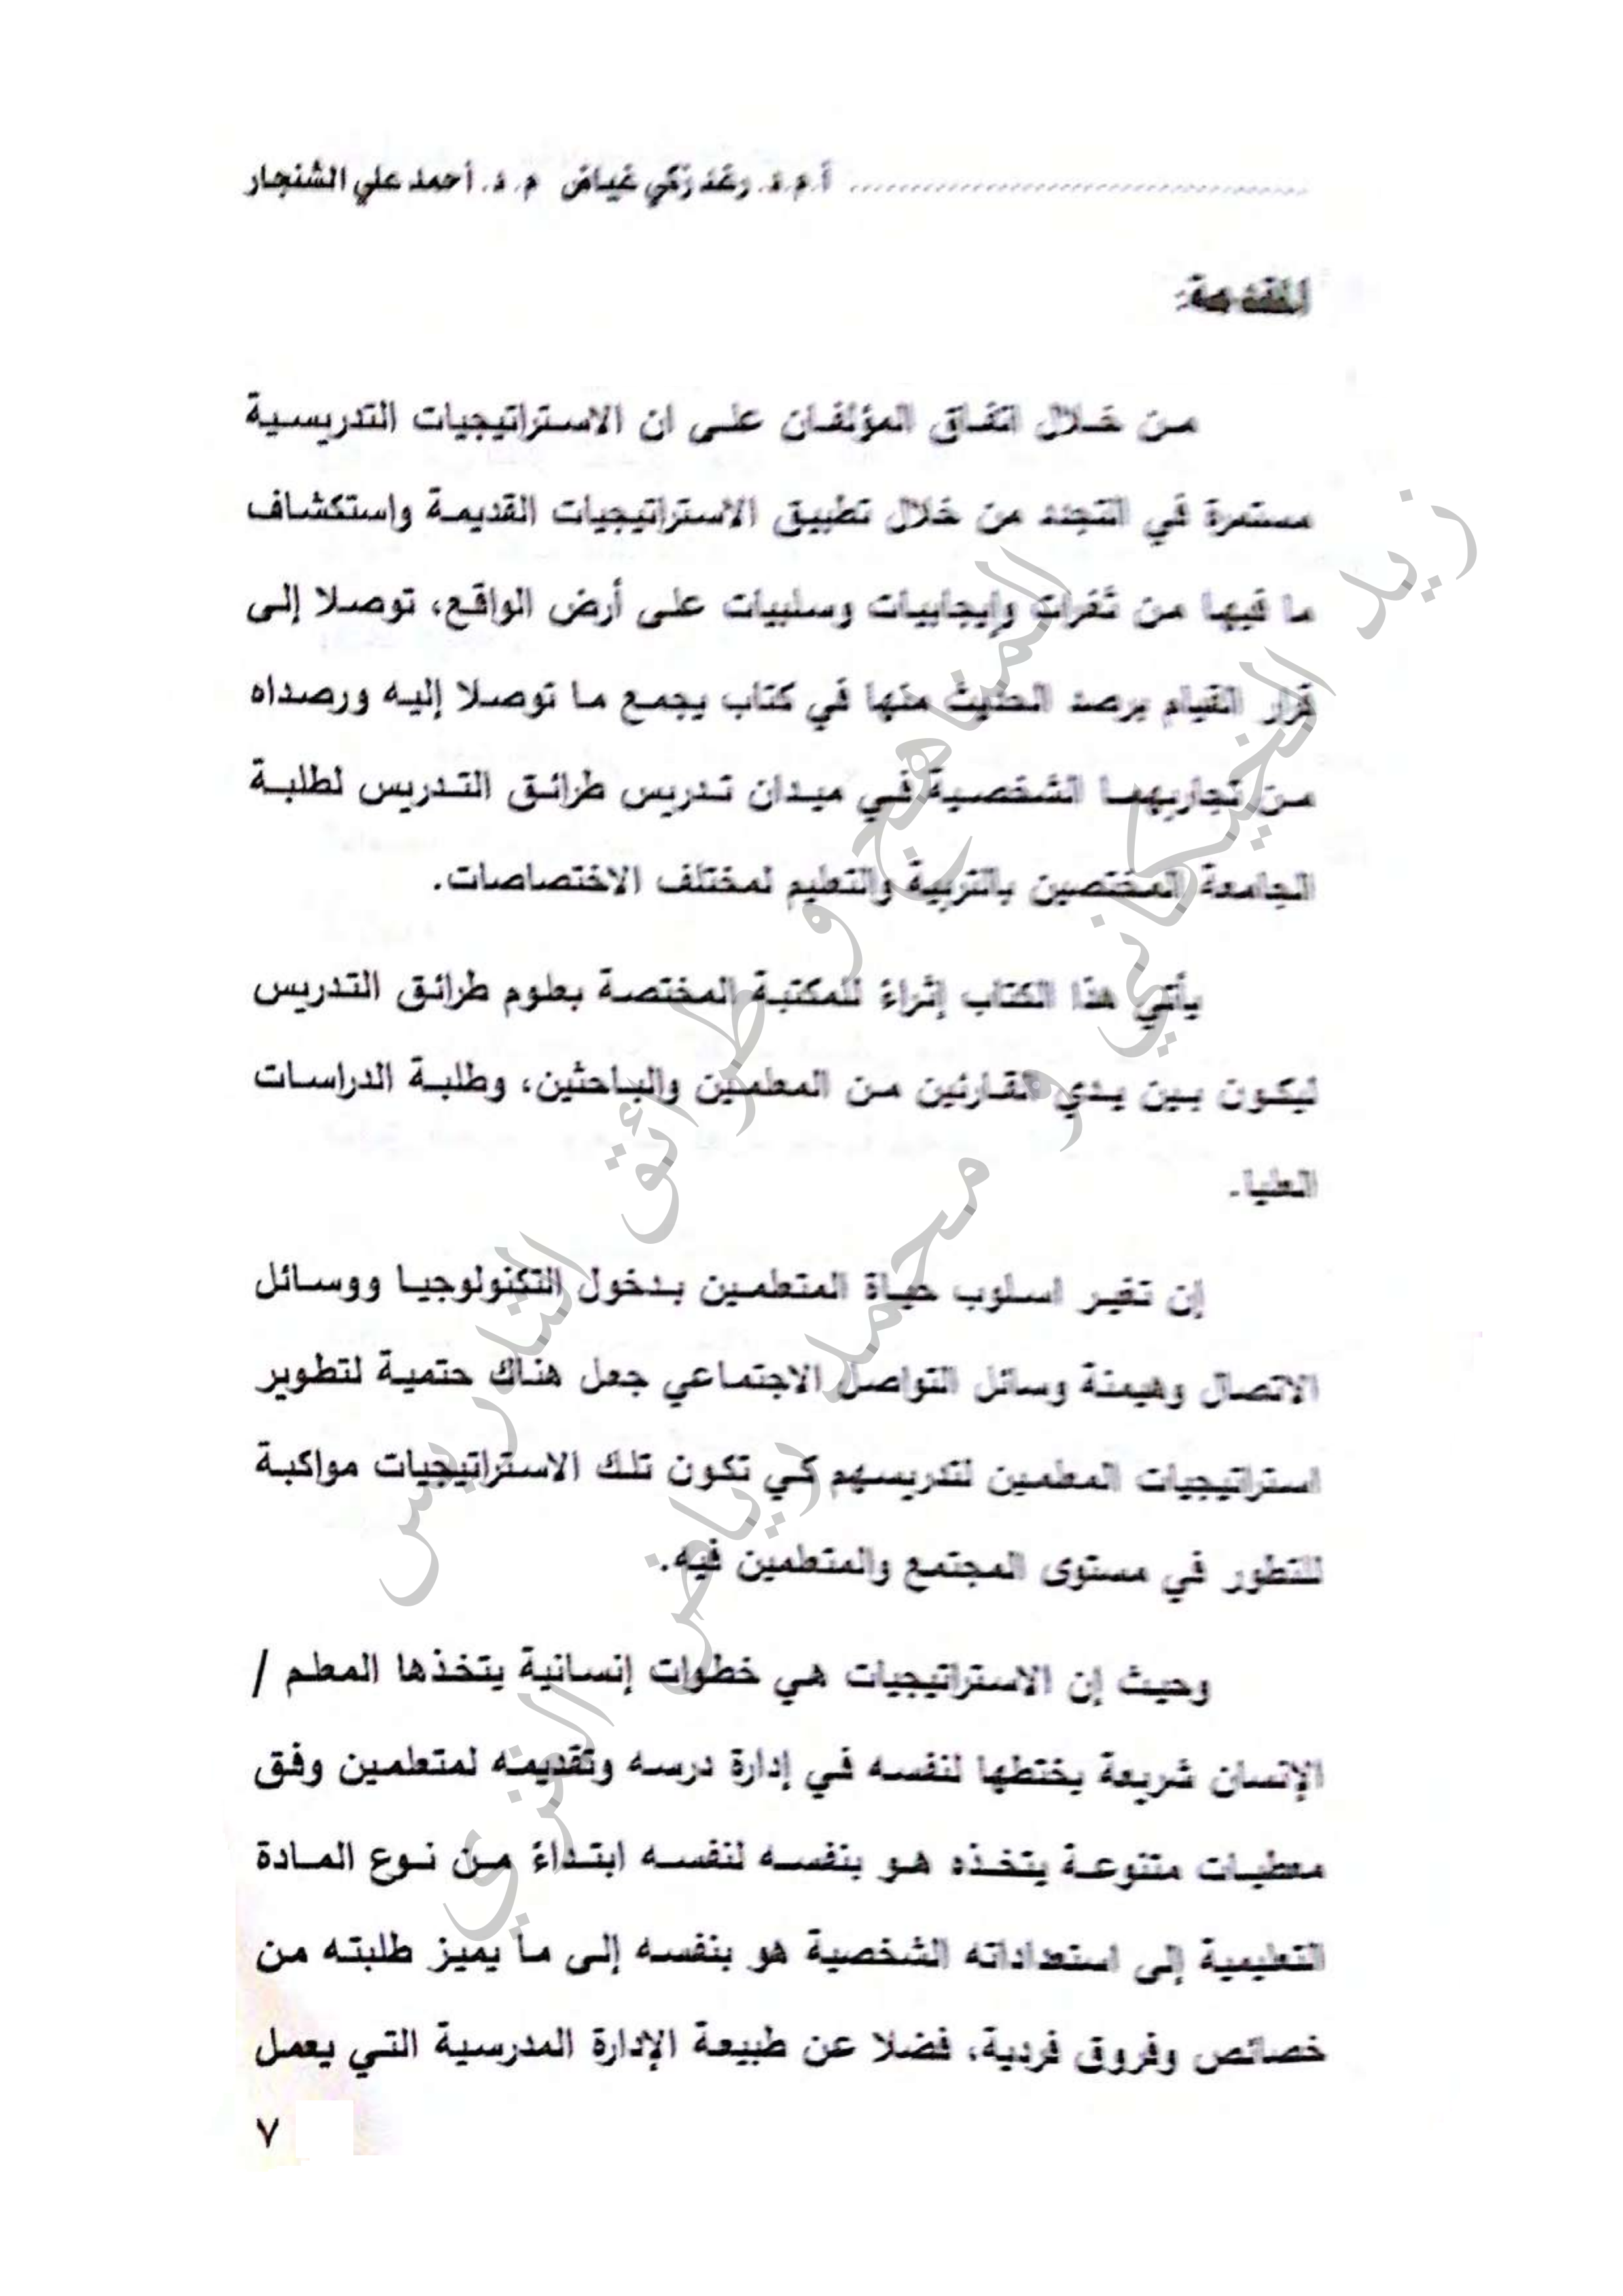 أ.م.د. رغد زكي غياض م. د. أحمد علي الشنجار
المقدمة:
من خلال اتفاق المؤلفان على ان الاستراتيجيات التدريسية
مستمرة في التجدد من خلال تطبيق الاستراتيجيات القديمة واستكشاف
ما فيها من ثغرات وإيجابيات وسلبيات على أرض الواقع، توصلا إلى
قرار القيام برصد الحديث منها في كتاب يجمع ما توصلا إليه ورصداه
من تجاربهما الشخصية في ميدان تدريس طرائق التدريس لطلبة
الجامعة المختصين بالتربية والتعليم لمختلف الاختصاصات.
يأتي هذا الكتاب إثراءً للمكتبة المختصة بعلوم طرائق التدريس
ليكون بين يدي القارئين من المعلمين والباحثين، وطلبة الدراسات
العليا.
إن تغير اسلوب حياة المتعلمين بدخول التكنولوجيا ووسائل
الاتصال وهيمنة وسائل التواصل الاجتماعي جعل هناك حتمية لتطوير
استراتيجيات المعلمين لتدريسهم كي تكون تلك الاستراتيجيات مواكبة
للتطور في مستوى المجتمع والمتعلمين فيه.
وحيث إن الاستراتيجيات هي خطوات إنسانية يتخذها المعلم /
الإنسان شريعة يختطها لنفسه في إدارة درسه وتقديمه لمتعلمين وفق
معطيات متنوعة يتخذه هو بنفسه لنفسه ابتداءً من نوع المادة
التعليمية إلى استعداداته الشخصية هو بنفسه إلى ما يميز طلبته من
خصائص وفروق فردية، فضلا عن طبيعة الإدارة المدرسية التي يعمل
٧
المناهج و طرائق التدريس
زيد الخيكاني و محمد رياض التزي